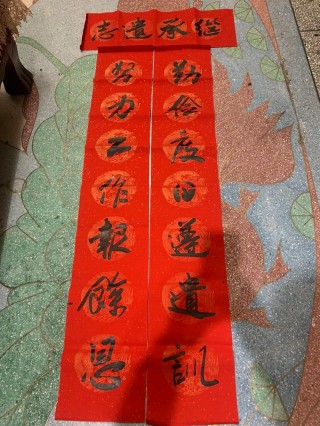 繼承遺志
勤儉度日遵遺訓
努力工作報餘恩